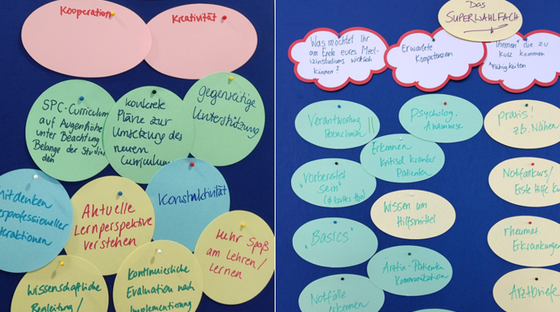 Kooperation
Kreativität
SPC-Curriculum
auf Augenhöhe
unter Beachtung
Belange der Studieren
den
konkrete
Pläne zur
Umsetzung des
neuen
Curriculum
gegenseitige
Unterstützung
Mitdenken
interprofessioneller
Interaktionen
Aktuelle
Lernperspektive
verstehen
Konstruktivität
Mehr Spaß
am Lehren/
Lernen
Wissenschaftliche
Begleitung/
kontinuierliche
Evaluation nach
Implementierung
Das
SUPERWAHLFACH
Was möchtet Ihr
am Ende eures
wirklich
können?
Erwartete
Kompetenzen
Themen die zu
kurz kommen
Fähigkeiten
Verantwortung
übernehmen
Psycholog.
Anamnese
praxis!
z.B. Nähen
Erkennen
Kritisch kranker
Patienten
"Vorbereitet
Sein"
Wissen um
Hilfsmittel
Notfallkurs/
Erste Hilfe
"Basics"
rheumat.
Erkrankungen
Ärztin-Patienten
Kommunikation
Notfälle
erkennen
Arztbriefe